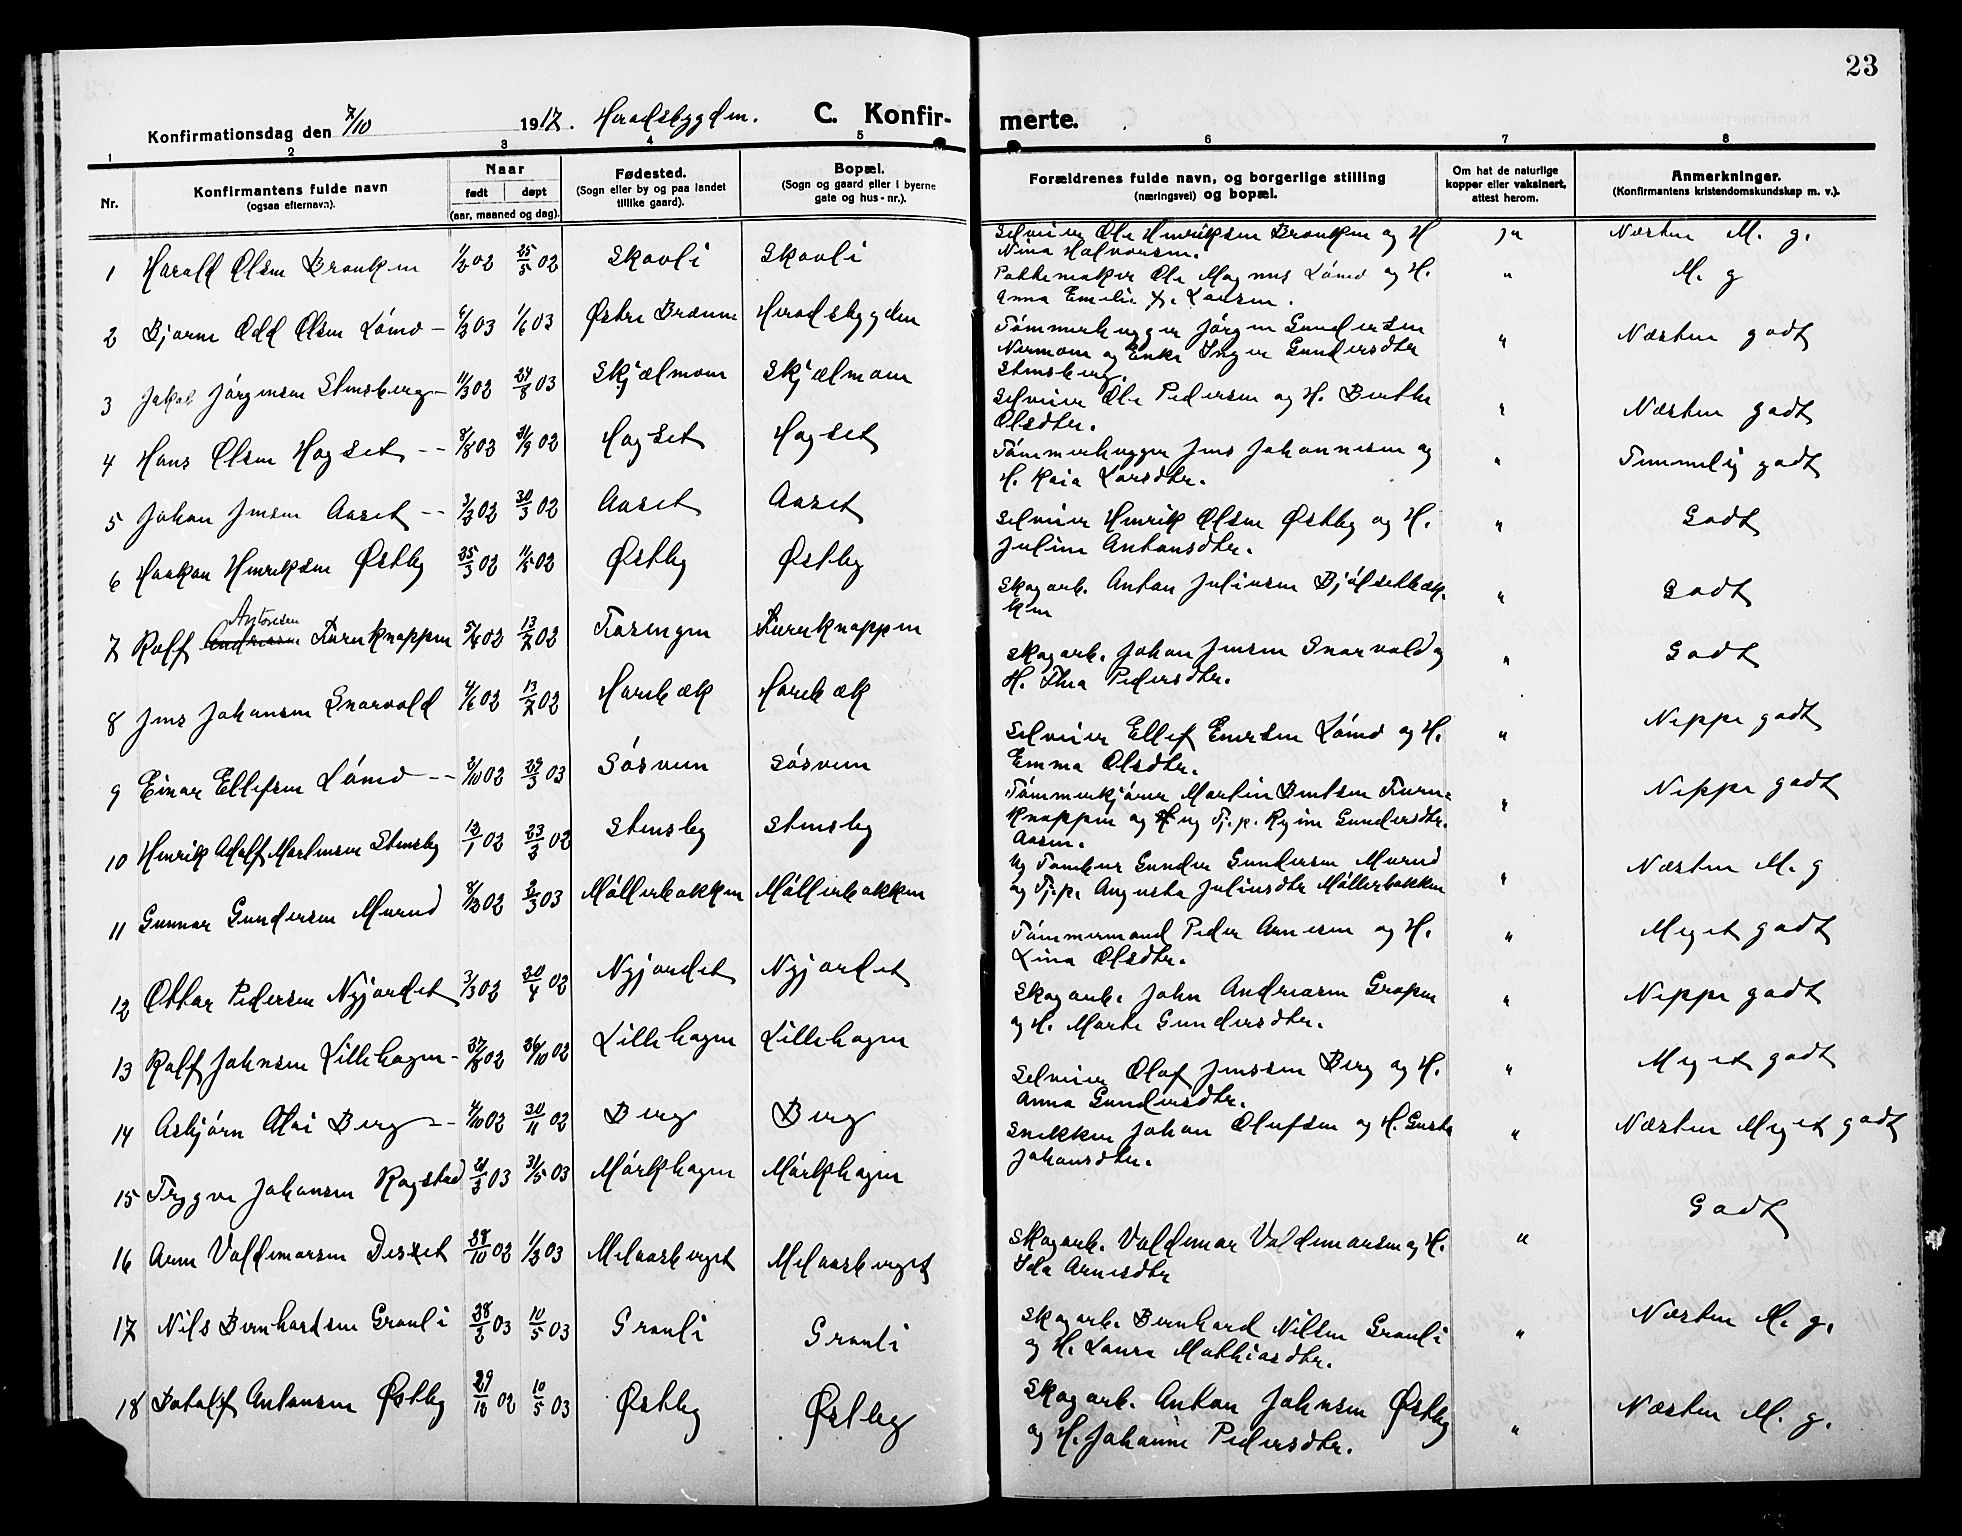 23
Konfirmationsdag den 7/10 1917. Heradsbygden. C. Konfirmerte.
1 2 3 4 5 6 7 8
Nr. Konfirmantens fulde navn (ogsaa efternavn). Naar født døpt (aar, maaned og dag). Fødested. (Sogn eller by og paa landet tillike gaard). Bopæl. (Sogn og gaard eller i byerne gate og hus-nr.). Forældrenes fulde navn, og borgerlige stilling (næringsvei) og bopæl. Om hat de naturlige kopper eller vaksinert, attest herom. Anmerkninger. (Konfirmantens kristendomskundskap m. v.).
1 Harald Olsen Brænken 1/2 02 25/5 02 Skovli Skovli Selveier Ole Henriksen Brænken og H
Nina Halvorsen. ja Næsten M. g.
2 Bjarne Odd Olsen Lömo – 6/3 03 1/6 03 Østre Brænne Heradsbygden Ole Magnus Lömo og H.
Anna Emilie Larsen. " M. g
3 Jakob Jörgensen Stensberg – 11/3 02 24/8 03 Skjælmoen Skjælmoen Tömmerhugger Jörgen Gundersen
Nermoen og Enke Inger Gundersdtr
Stensberg. " Næsten godt
4 Hans Olsen Hagset – – 8/8 02 21/9 02 Hagset Hagset Selveier Ole Pedersen og H. Berthe
Olsdtr. " Næsten godt
5 Johan Jensen Aaset – – 3/2 02 30/3 02 Aaset Aaset Tömmerhugger Jens Johannesen og
H. Kaia Larsdtr. " Temmelig godt
6 Haakon Henriksen Østby 25/3 02 11/5 02 Østby Østby Selveier Henrik Olsen Østby og H.
Juline Antonsdtr. " Godt
7 Rolf Antonsen Furuknappen 5/6 02 13/7 02 Furuknappen Skogarb. Anton Juliusen Bjölsetbæk-
ken " Godt
8 Jens Johansen Snarvold 4/6 02 13/7 02 Harebæk Harebæk Skogarb. Johan Jensen Snarvold og
H. Thea Pedersdtr. " Godt
9 Einar Ellefsen Lömo – – 2/10 02 29/3 03 Sösveen Sösveen Selveier Ellef Enersen Lömo og H.
Emma Olsdtr. " Neppe godt
10 Henrik Adolf Martinsen Stensby 12/1 02 23/2 02 Stensby Stensby Tömmerkjörer Martin Berntsen Furu-
knappen og ug Tj.p. Regine Gundersdtr.
Aasen. " Neppe godt
11 Gunnar Gundersen Murud 8/12 02 2/3 03 Möllerbakken Möllerbakken Ug Gunder Gundersen Murud
og Tj.p. Augusta Juliusdtr Möllerbakken " Næsten M. g
12 Ottar Pedersen Nyjordet 3/3 02 20/4 02 Nyjordet Nyjordet Tömmermand Peder Arnesen og H.
Lina Olsdtr. " Meget godt
13 Rolf Johnsen Lillehagen – 27/8 02 26/10 02 Lillehagen Lillehagen Skogarb. John Andreasen Gropen
og H. Marte Gundersdtr. " Neppe godt
14 Asbjörn Olai Berg – – 4/10 02 30/11 02 Berg Berg Selveier Olaf Jenssen Berg og H.
Anna Gundersdtr. " Meget godt
15 Trygve Johansen Rogstad 21/3 03 31/5 03 Mörkhagen Mörkhagen Snekker Johan Olufsen og H. Gusta
Johansdtr. " Næsten Meget godt
16 Arne Valdemarsen Desset 28/10 02 1/3 03 Melaasberget Melaasberget Skogarb. Valdemar Valdemarsen og H.
Ida Arnesdtr " Godt
17 Nils Bernhardsen Granli 28/2 03 10/5 03 Granli Granli Skogarb. Bernhard Nilsen Granli
og H. Laura Mathiasdtr. " Næsten M. g.
18 Antonsen Østby 29/10 02 10/5 03 Østby Østby Skogarb. Anton Johnsen Østby
og H. Johanne Pedersdtr. " Næsten M. g.